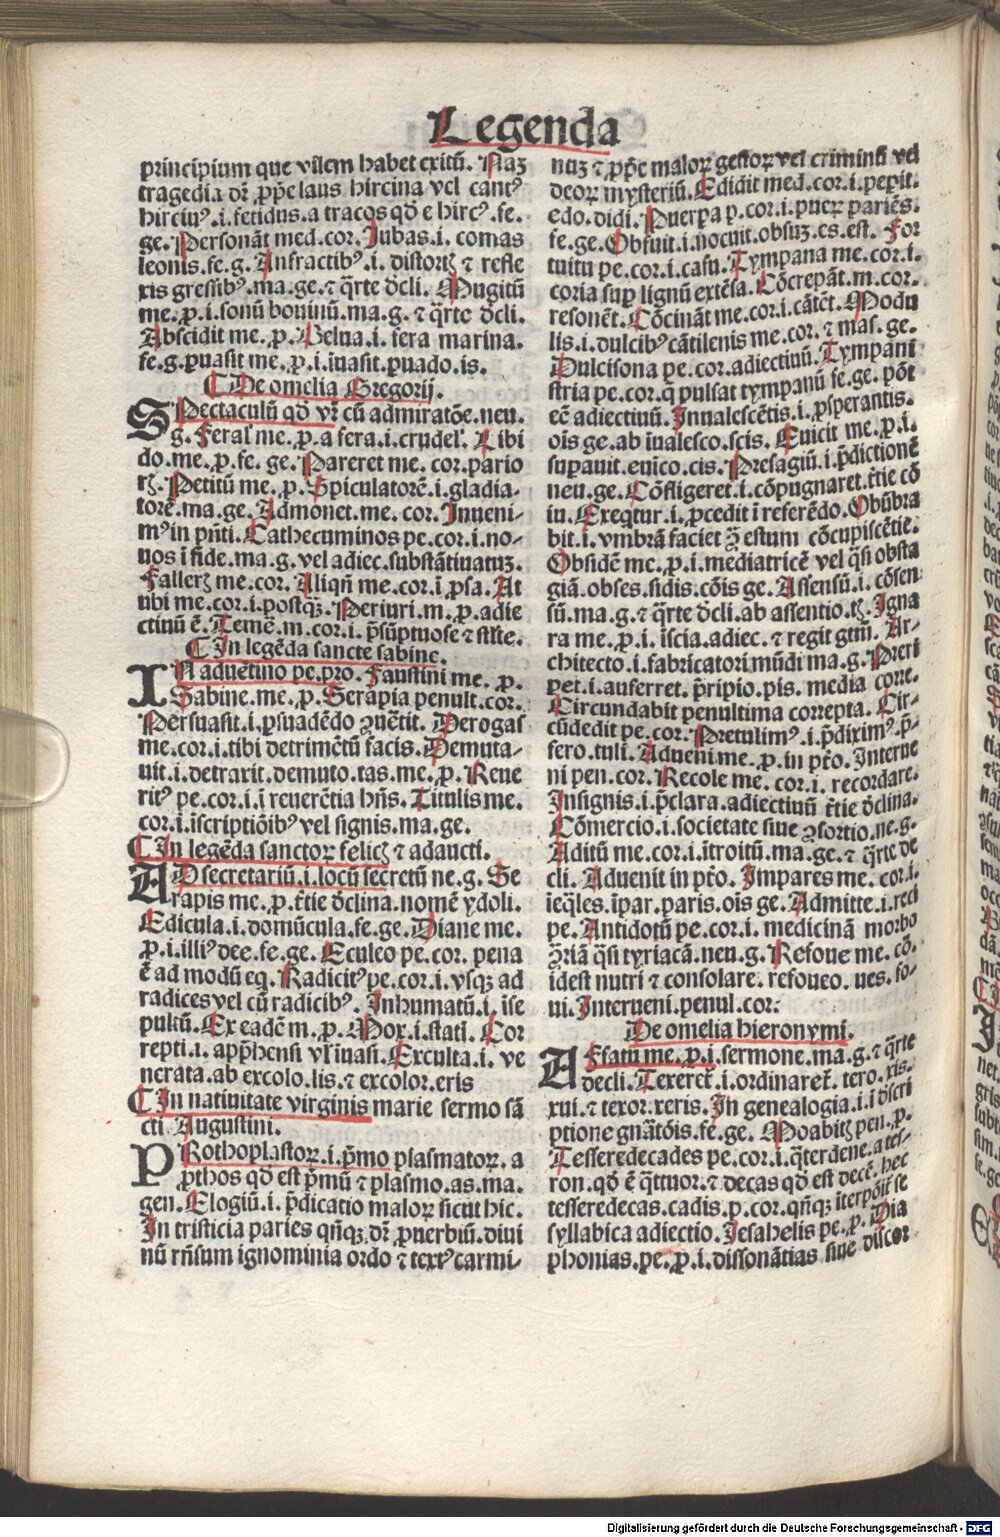 Legenda
principium que vilem habet exitū. Naꝫ
tragedia dr̄. ꝓp̄e laus hircina vel cantꝰ
hirciuꝰ .i. fetidus . a tracos qd̄ e hircꝰ . fe .
ge . Personāt med . cor . Jubas .i. comas
leonis . fe . g . Anfractibꝰ .i. distortꝭ ⁊ refle
xis gressibꝰ . ma . ge . ⁊ q̄rte d̄cli . Mugitū
me . ꝓ .i. sonū bouinū . ma . g . ⁊ q̄rte d̄cli .
Abscidit me . ꝓ . Belua .i. fera marina .
fe . g . ꝑuasit me . ꝓ .i. īuasit . ꝑuado . is .
De omelia Gregorij .
SPectaculū qd̄ vr̄ cū admiratōe . neu .
g . Feral' me . ꝓ . a fera .i. crudel' . Libi
do . me . ꝓ . fe . ge . Pareret me . cor . pario
rꝭ . Petitū me . ꝓ . Spiculatorē .i. gladia-
torē . ma . ge . Admonet . me . cor . Inueni-
mꝰ in pn̄ti . Cathecuminos pe . cor .i. no-
uos ī fide . ma . g . vel adiec . substātiuatuꝫ .
Fallerꝭ me . cor . Aliqn̄ me . cor .ī ꝓsa . At
ubi me . cor .i. postqꝫ . Periuri . m . ꝓ . adie
ctinū ē . Temē . m . cor .i. p̄sūptuose ⁊ stl̄te .
In legēda sancte sabine .
IN aduētino pe . pro . Faustini me . ꝓ .
Sabine . me . ꝓ . Serapia penult . cor .
Persuasit .i. ꝑsuadēdo ꝯuētit . Derogas
me . cor .i. tibi detrimētū facis . Demuta-
uit .i. detraxit . demuto . tas . me . ꝓ . Reue
ritꝰ pe . cor .i. ī reuerētia hn̄s . Titulis me .
cor .i. īscriptiōibꝰ vel signis . ma . ge .
In legēda sanctoꝝ felicꝭ ⁊ adaucti .
AD secretariū .i. locū secretū ne . g . Se
rapis me . ꝓ . t̄tie d̄clina . nomē ydoli .
Edicula .i. domūcula . fe . ge . Diane me .
ꝓ .i. illiꝰ dee . fe . ge . Eculeo pe . cor . pena
ē ad modū eq . Radicitꝰ pe . cor .i. vsqꝫ ad
radices vel cū radicibꝰ . Inhumatū .i. īse
pultū . Ex eadē m . ꝓ . Mox .i. stati . Cor
repti .i. app̄hensi vr̄ īuasi . Exculta .i. ve
nerata . ab excolo . lis . ⁊ excolor . eris
In natiuitate virginis marie sermo sā
cti . Augustini .
PRothoplastoꝝ .i. p̄mo plasmatoꝝ . a
ꝓthos qd̄ est p̄mū ⁊ plasmo . as . ma .
gen . Elogiū .i. p̄dicatio maloꝝ sicut hic .
In tristicia paries qn̄qꝫ . dr̄ . ꝓuerbiū . diui
nū rn̄sum ignominia ordo ⁊ textꝰ carmi-
nuꝫ ⁊ ꝓp̄e maloꝝ gestoꝝ vel criminū vel
deoꝝ mysteriū . Edidit med . cor .i. peꝑit .
edo . didi . Puerpa ꝓ . cor .i. pueꝝ pariēs .
fe . ge . Obfuit .i. nocuit . obsuꝫ . es . est . For
tuitu pe . cor .i. casu . Tympana me . cor .i.
coria suꝑ lignū extēsa . Cōcrepāt . m . cor .
resonēt . Cōcināt me . cor .i. cātēt . Modu
lis .i. dulcibꝰ cātilenis me . cor . ⁊ mas . ge .
Dulcisona pe . cor . adiectiuū . Tympani
stria pe . cor . q̄ pulsat tympanū fe . ge . pōt
ecē adiectinū . Inualescētis .i. ꝓsperantis .
ois ge . ab īualesco . scis . Euicit me . ꝓ .i.
suꝑauit . euico . cis . Presagiū .i. p̄dictionē
neu . ge . Cōfligeret .i. cōpugnaret . t̄tie cō
iu . Exeqtur .i. ꝓcedit ī referēdo . Obūbra
bit .i. vmbrā faciet ꝯ̄ estum cōcupiscētie .
Obsidē me . ꝓ .i. mediatricē vel qͣsi obsta
giā . obses . sidis . cōis ge . Assensū .i. cōsen
sū . ma . g . ⁊ q̄rte d̄cli . ab assentio . tꝭ . Igna
ra me . ꝓ .i. īscia . adiec . ⁊ regit gtm̄ . Ar-
chitecto .i. fabricatori mūdi ma . g . Preri
pet .i. auferret . p̄ripio . pis . media corre .
Circundabit penultima correpta . Cir-
cūdedit pe . cor . Pretulimꝰ .i. p̄diximꝰ . p̄-
fero . tuli . Adueni me . ꝓ . in pt̄o . Interue
ni pen . cor . Recole me . cor .i. recordare .
Insignis .i. p̄clara . adiectiuū t̄tie d̄clina .
Cōmercio .i. societate siue ꝯsortio . ne . g .
Aditū me . cor .i. ītroitū . ma . ge . ⁊ q̄rte de
cli . Aduenit in pt̄o . Impares me . cor .i.
ieq̄les . īpar . paris . ois ge . Admitte .i. reci
pe . Antidotū pe . cor .i. medicinā morbo
ꝯ̄riā qͣsi tyriacā . neu . g . Refoue me . cō .
idest nutri ⁊ consolare . refoueo . ues . fo-
ui . Interueni . penul . cor :
De omelia hieronymi .
AFfatu me . ꝓ .i. sermone . ma . g . ⁊ q̄rte
decli . Texeret̄ .i. ordinaret̄ . texo . xis .
xui . ⁊ texor . xeris . In genealogia .i. ī d̄scri
ptione gn̄atōis . fe . ge . Moabitꝭ pen . ꝓ .
Tesseredecades pe . cor .i. q̄terdene . a tes-
ron . qd̄ ē q̄ttuor . ⁊ decas qd̄ est decē . hec
tesseredecas . cadis . ꝓ . cor . qn̄qꝫ īterpōīt̄ se
syllabica adiectio . Jesahelis pe . ꝓ . Dia
phonias . pe . ꝓ .i. dissonātias siue discor
Digitalisierung gefördert durch die Deutsche Forschungsgemeinschaft - DFG